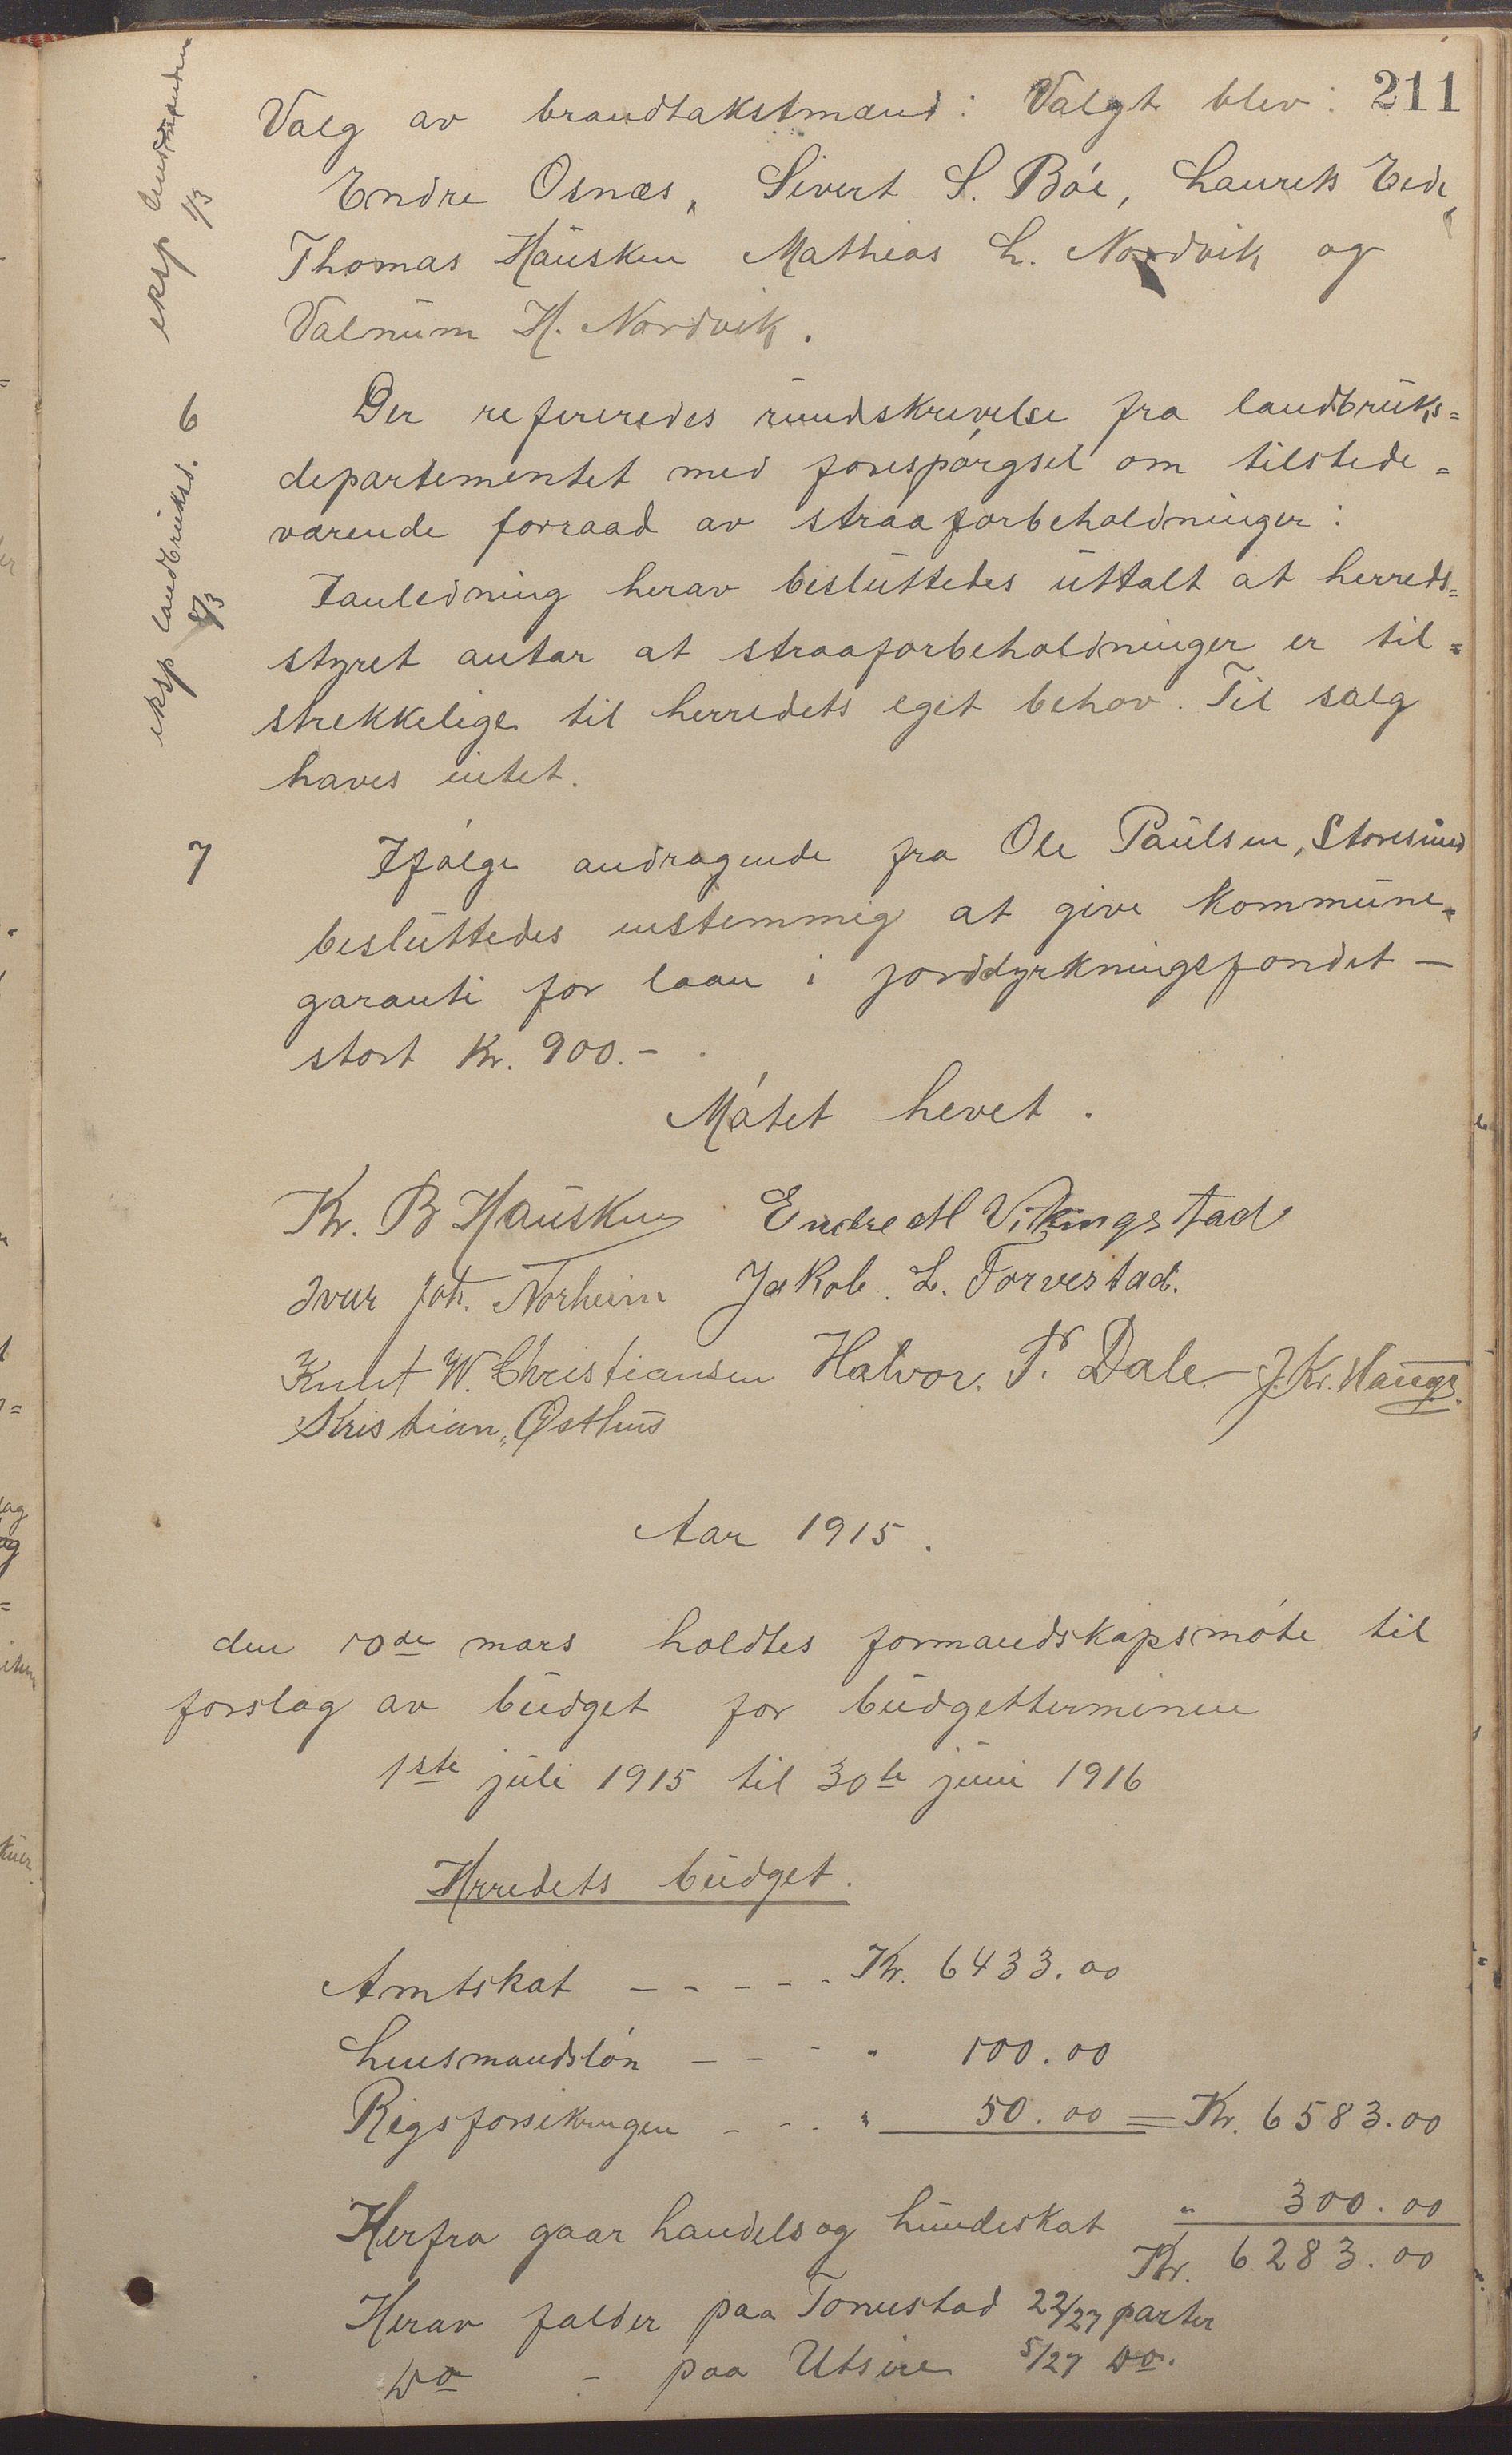 211
eksp lensmanden
1/3
Valg av brandtakstmænd: Valgt blev:
Endre Osnæs, Sivert S. Bóe, Laurits Eide,
Thomas Hausken Mathias L. Nordvik og
Valnum H. Nordvik.
6
eksp landbruksd.
8/3
Der refereredes rundskrivelse fra landbruks=
departementet med forespórgsel om tilstede=
værende forraad av straaforbeholdninger:
I anledning herav besluttedes uttalt at herreds=
styret antar at straaforbeholdninger er til=
strekkelige til herredets eget behov. Til salg
haves intet.
7
Ifólge andragende fra Ole Paulsen, Storesund
besluttedes enstemmig at give kommune=
garanti for laan i jorddyrkningsfondet —
stort Kr. 900.-
Mótet hevet.
Kr. B Hausken Endre M Vikingstad
Ivar Joh. Norheim Jakob. L. Torvestad.
Knut W. Christiansen Halvor. P. Dale - J. Kr. Hauge.
Kristian, Østhus
Aar 1915.
den 10de mars holdtes formandskapsmóte til
forslag av budget for budgetterminen
1ste juli 1915 til 30te juni 1916
Herredets budget.
Amtskat - - - - - Kr. 6433.00
Lensmandslón - - - " 100.00
Rigsforsikringen - - - " 50.00 = Kr. 6583.00
Herfra gaar handels og hundeskat " 300.00
Kr. 6283.00
Herav falder paa Torvestad 22/27 parter
Do - paa Utsire 5/27 Do.